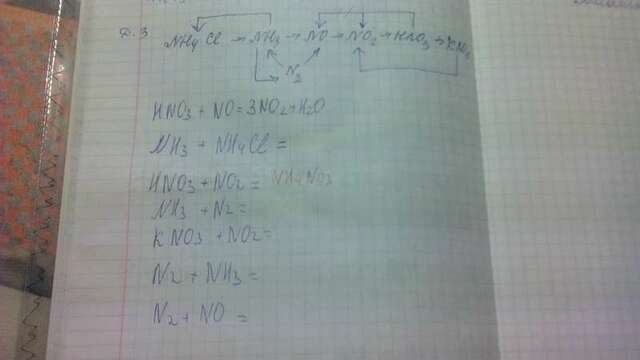 Д.З
NH4Cl → NH3 → NO → NO2 → HNO3 → KNO3
N2
HNO3 + NO = 3NO2 + H2O
NH3 + NH4Cl =
HNO3 + NO2 = NH4NO3
NH3 + N2 =
KNO3 + NO2 =
N2 + NH3 =
N2 + NO =